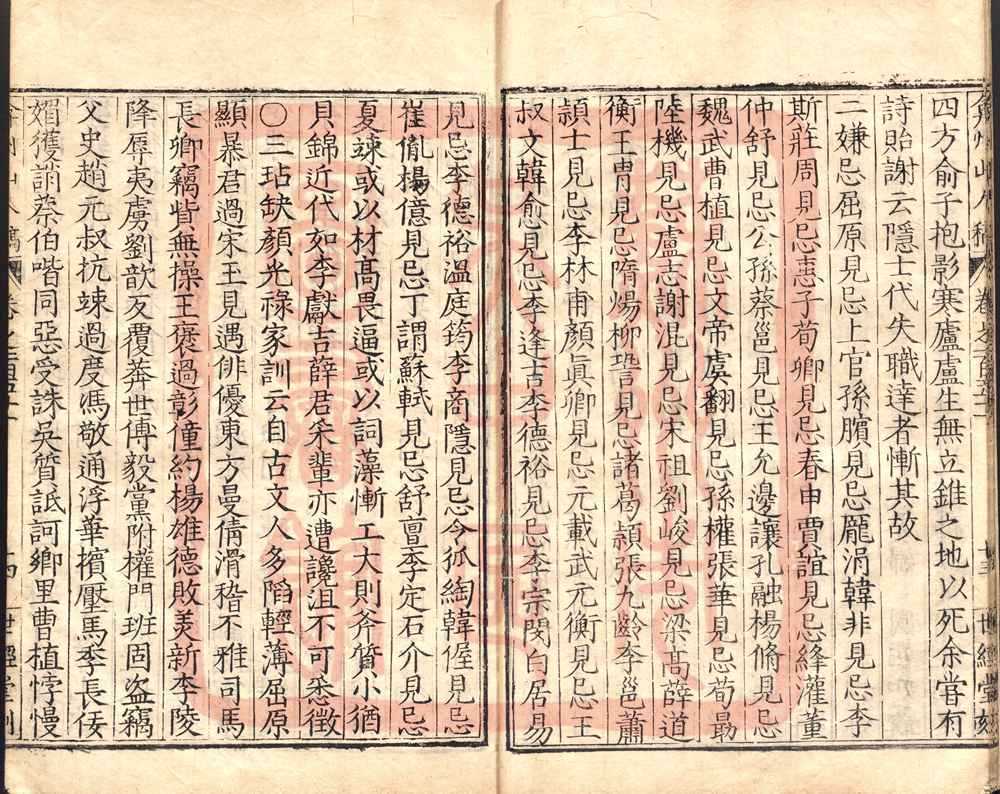 弇州山人稿 卷之一百五十一 世經堂刻
四方俞子抱影寒廬盧生無立錐之地以死余嘗有
詩貽謝云隱士代失職達者慚其故
二嫌忌屈原見忌上官孫臏見忌龐涓韓非見忌李
斯莊周見忌惠子荀卿見忌春申賈誼見忌絳灌董
仲舒見忌公孫蔡邕見忌王允邊讓孔融楊脩見忌
魏武曹植見忌文帝虞翻見忌孫權張華見忌荀勗
陸機見忌盧志謝混見忌宋祖劉峻見忌梁高薛道
衡王冑見忌隋煬柳䛒見忌諸葛頴張九齡李邕蕭
頴士見忌李林甫顏眞卿見忌元載武元衡見忌王
叔文韓愈見忌李逢吉李德裕見忌李宗閔白居易
見忌李德裕溫庭筠李商隱見忌令狐綯韓偓見忌
崔胤楊億見忌丁謂蘇軾見忌舒亶李定石介見忌
夏竦或以材高畏逼或以詞藻慚工大則斧質小猶
貝錦近代如李獻吉薛君采輩亦遭讒沮不可悉徵
〇三玷缺顏光祿家訓云自古文人多陷輕薄屈原
顯暴君過宋玉見遇俳優東方曼倩滑稽不雅司馬
長卿竊貲無操王褒過彰僮約楊雄德敗美新李陵
降辱夷虜劉歆反覆莽世傅毅黨附權門班固盜竊
父史趙元叔抗竦過度馮敬通浮華擯壓馬季長佞
媚獲誚蔡伯喈同惡受誅吳質詆訶鄉里曹植悖慢
弇州山人稿 卷之一百五十一 十四 世經堂刻